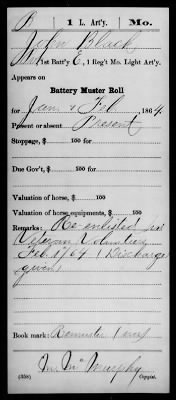 B 1 L. Art'y. Mo.
John Black
1st Batt'y E, 1 Reg't Mo. Light Art'y.
Appears on
Battery Muster Roll
for Jan & Feb, 1864.
Present or absent Present
Stoppage, $ 100 for
Due Gov't, $ 100 for
Valuation of horse, $ 100
Valuation of horse equipments, $ 100
Remarks: Re-enlisted as
Veteran Volunteer
Feb 1/64 (Discharge
given)
Book mark: Remuster
Murphy
(358) Copyist.